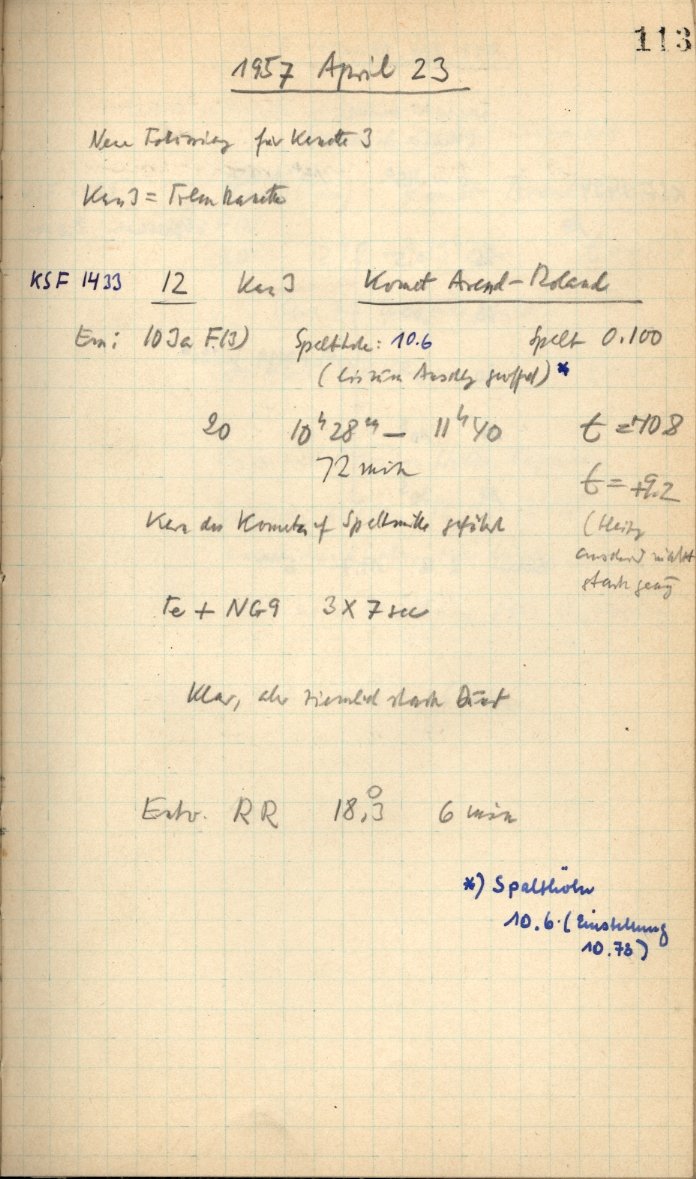 113
1957 April 23
Neue Fokussierung für Kassette 3
Kas 3 =
KSF 1433 12 Kas 3 Komet Arend-Roland
Em: 103a F(3) Spalthöhe: 10.6 Spalt 0.100
(bis zum Anschlag geöffnet) *
20 10h28m – 11h40 t = +10.8
72 min t = +9.2
Kern des Kometen auf Spaltmitte geführt (Heizg
anscheind nicht
stark genug
Fe + NG9 3 x 7 sec
Klar, aber ziemlich stark Dunst
Entw. RR 18,°3 6 min
*) Spalthöhe
10.6 (Einstellung
10.73)